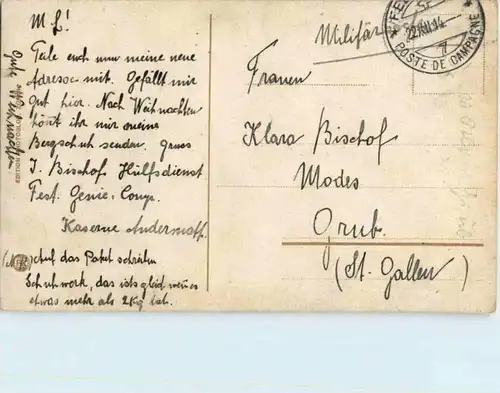 M L!
Teile euch nun meine neue
Adresse mit. Gefällt mir
gut hier. Nach Weihnachten
könt ihr mir meine
Bergschuh senden. Gruss
J. Bischof Hülfsdienst
Fest. Genie. Comp.
Kaserne Andermatt
auf das Paket schreiben
Schuhwerk, das ists gleich wenn es
etwas mehr als 2 Kg ist.
Gute Weihnachten
EDITION PHOTOGLOB
Militär
22.XII.14
7
POSTE DE CAMPAGNE
Frauen
Klara Bischof
Modes
Grub.
(St. Gallen)